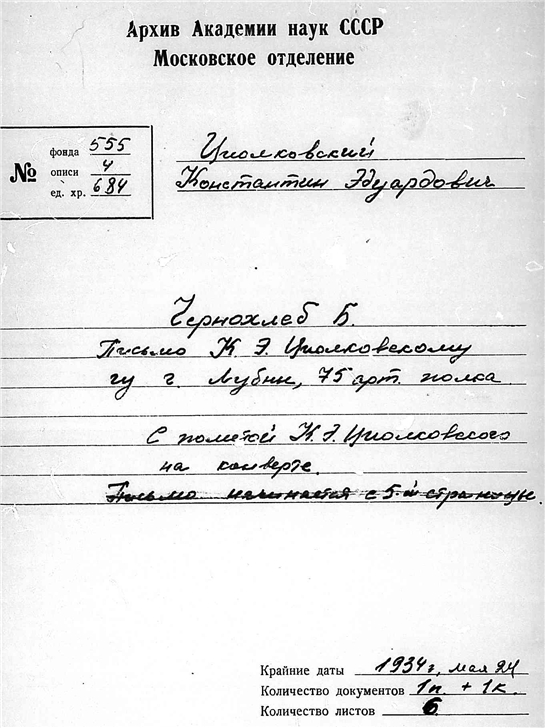 Архив Академии наук СССР
Московское отделение
№
фонда 555
описи 4
ед. хр. 684
Циолковский
Константин Эдуардович
Чернохлеб Б.
Письмо К. Э. Циолковскому
г. Лубны, 75 арт. полка
С пометой К. Э. Циолковского
на конверте.
Письмо начинается с 5-й страницы.
Крайние даты 1934 г, мая 24
Количество документов 1п. + 1к.
Количество листов 6